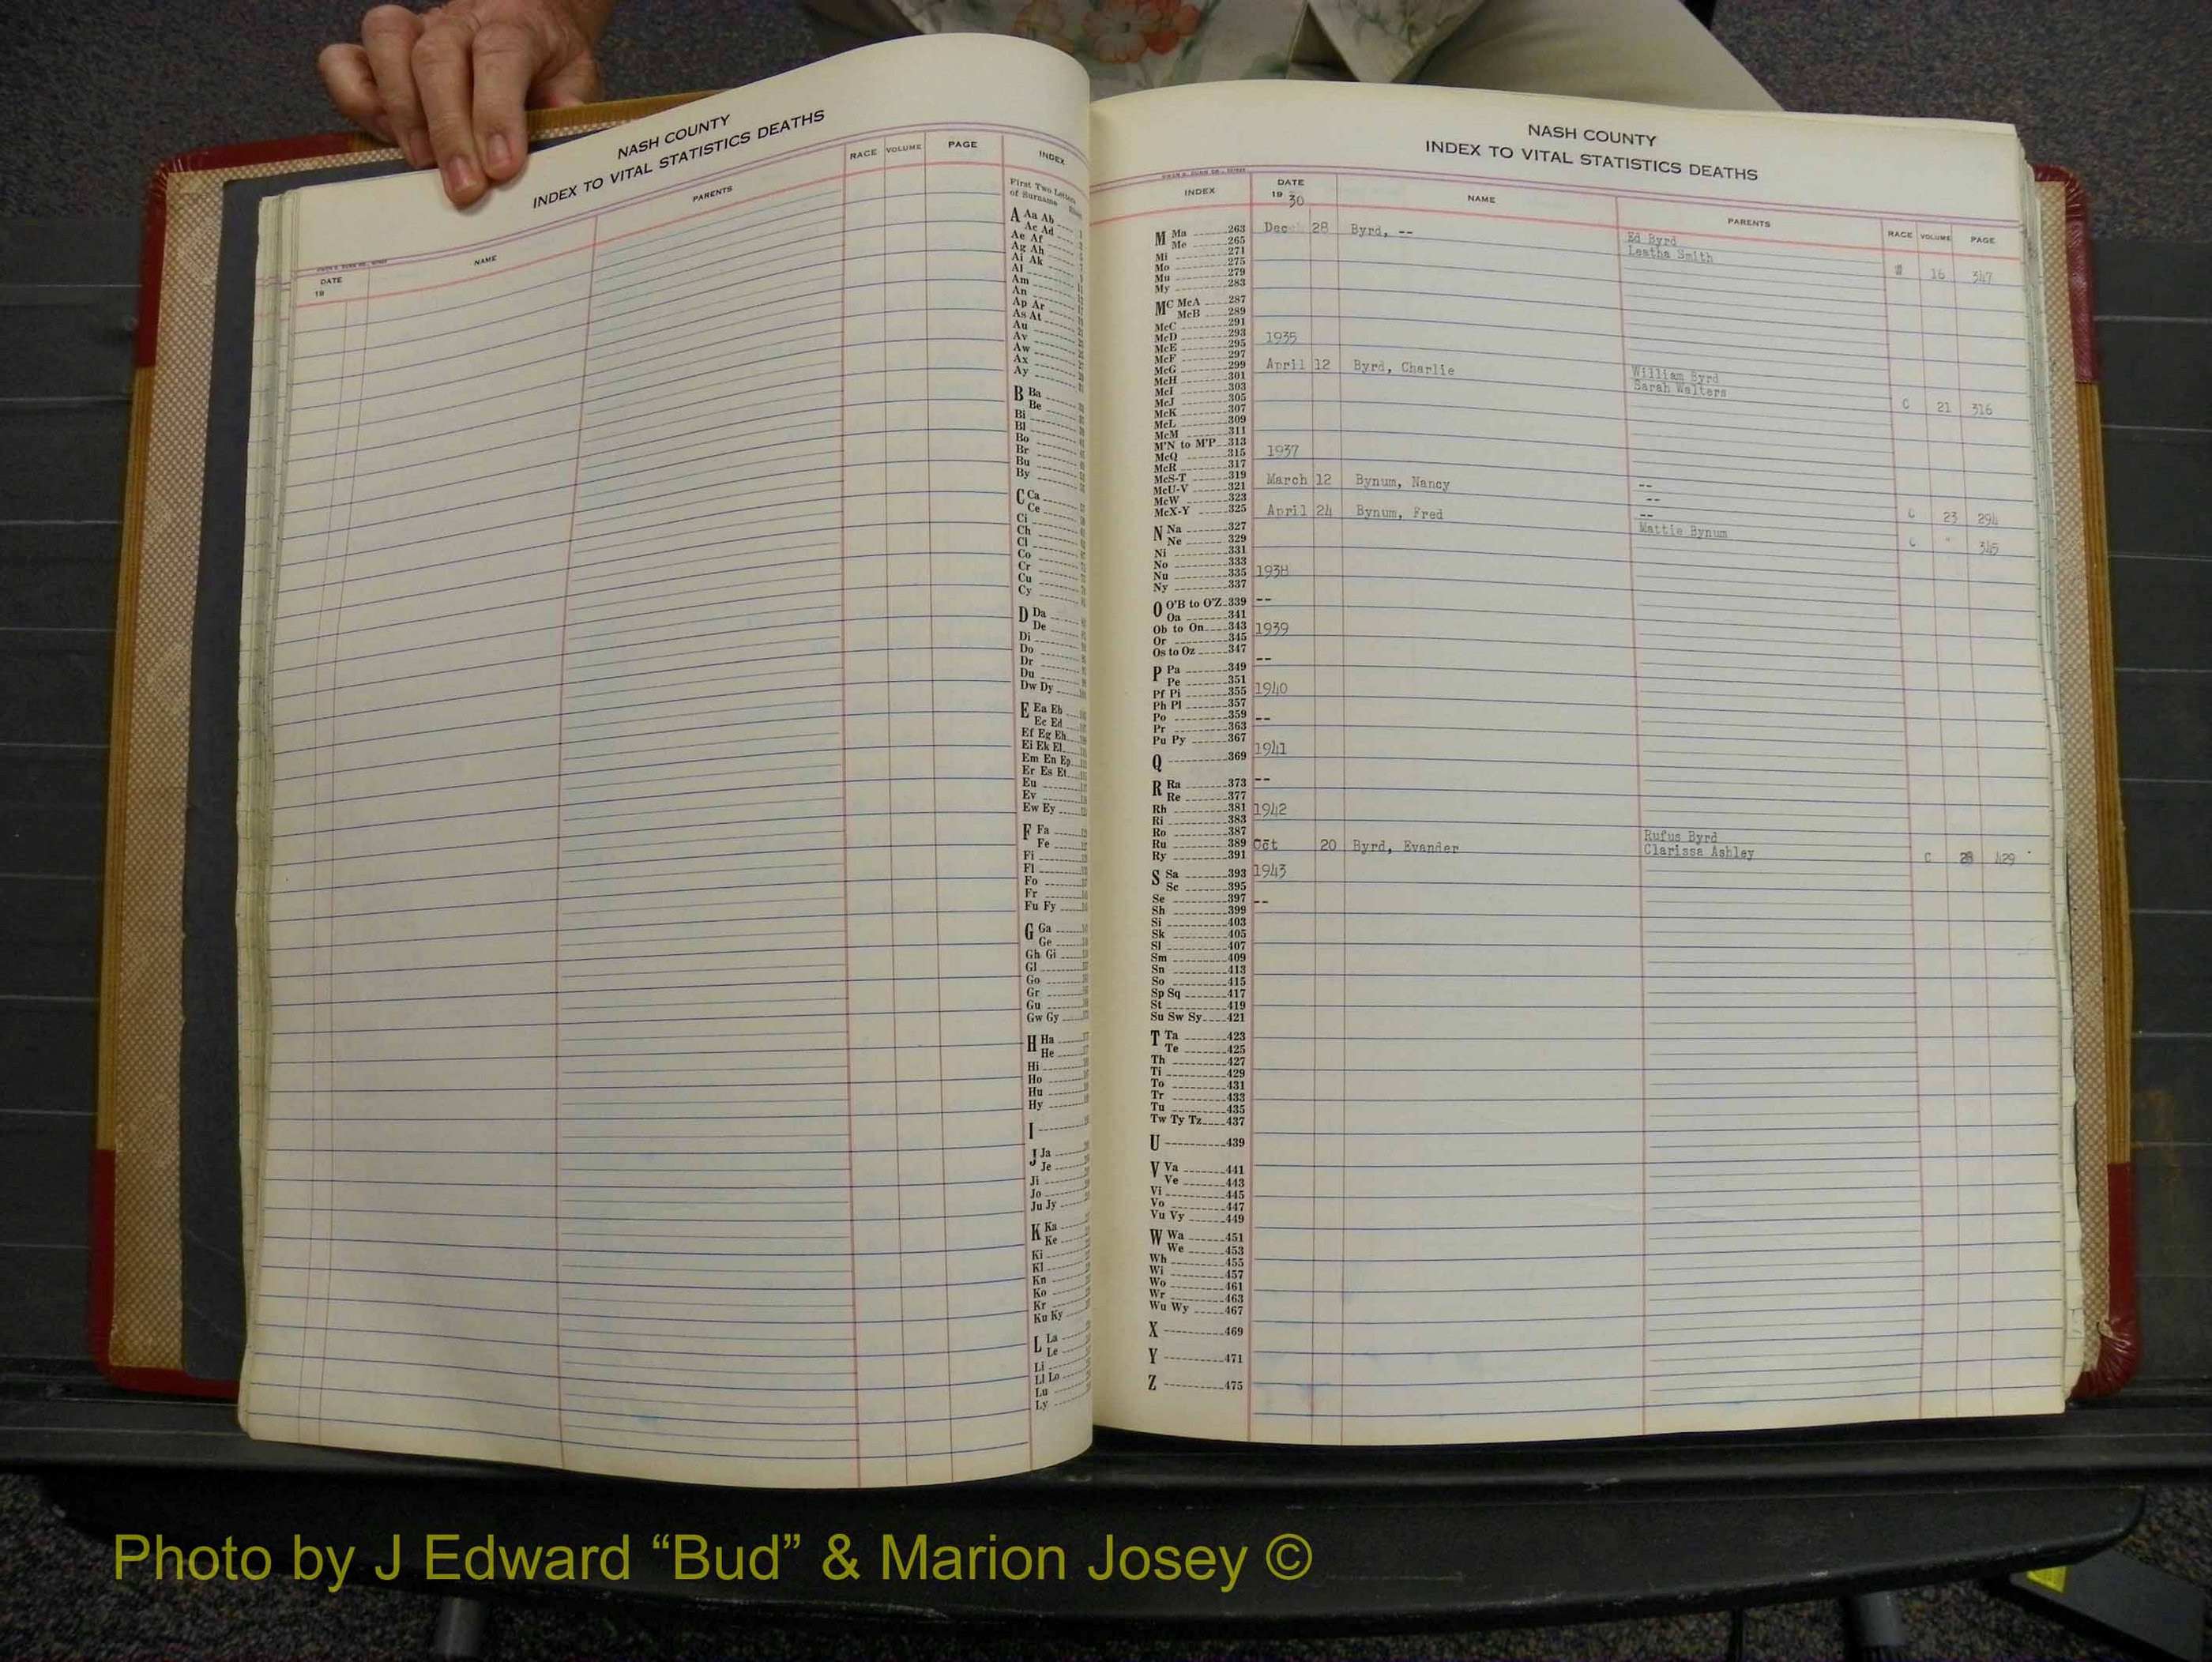 NASH COUNTY
INDEX TO VITAL STATISTICS DEATHS
DATE
19
NAME
PARENTS
RACE
VOLUME
PAGE
INDEX
First Two Letters
of Surname
A Aa Ab
Ac Ad
Ae Af
Ag Ah
Ai Ak
Al
Am
An
Ap Ar
As At
Au
Av
Aw
Ax
Ay
B Ba
Be
Bi
Bl
Bo
Br
Bu
By
C Ca
Ce
Ci
Ch
Cl
Co
Cr
Cu
Cy
D Da
De
Di
Do
Dr
Du
Dw Dy
E Ea Eb
Ec Ed
Ef Eg Eh
Ei Ek El
Em En Ep
Er Es Et
Eu
Ev
Ew Ey
F Fa
Fe
Fi
Fl
Fo
Fr
Fu Fy
G Ga
Ge
Gh Gi
Gl
Go
Gr
Gu
Gw Gy
H Ha
He
Hi
Ho
Hu
Hy
I
J Ja
Je
Ji
Jo
Ju Jy
K Ka
Ke
Ki
Kl
Kn
Ko
Kr
Ku Ky
L La
Le
Li
Ll Lo
Lu
Ly
NASH COUNTY
INDEX TO VITAL STATISTICS DEATHS
INDEX
DATE
19 30
NAME
PARENTS
RACE
VOLUME
PAGE
M Ma 263
Me 265
Mi 271
Mo 275
Mu 279
My 283
MC McA 287
McB 289
McC 291
McD 293
McE 295
McF 297
McG 299
McH 301
McI 303
McJ 305
McK 307
McL 309
McM 311
M'N to M'P 313
McQ 315
McR 317
McS-T 319
McU-V 321
McW 323
McX-Y 325
N Na 327
Ne 329
Ni 331
No 333
Nu 335
Ny 337
O O'B to O'Z 339
Oa 341
Ob to On 343
Or 345
Os to Oz 347
P Pa 349
Pe 351
Pf Pi 355
Ph Pl 357
Po 359
Pr 363
Pu Py 367
Q 369
R Ra 373
Re 377
Rh 381
Ri 383
Ro 387
Ru 389
Ry 391
S Sa 393
Sc 395
Se 397
Sh 399
Si 403
Sk 405
Sl 407
Sm 409
Sn 413
So 415
Sp Sq 417
St 419
Su Sw Sy 421
T Ta 423
Te 425
Th 427
Ti 429
To 431
Tr 433
Tu 435
Tw Ty Tz 437
U 439
V Va 441
Ve 443
Vi 445
Vo 447
Vu Vy 449
W Wa 451
We 453
Wh 455
Wi 457
Wo 461
Wr 463
Wu Wy 467
X 469
Y 471
Z 475
Dec 28 Byrd, -- Ed Byrd
Leatha Smith W 16 347
1935
April 12 Byrd, Charlie William Byrd
Sarah Walters C 21 316
1937
March 12 Bynum, Nancy --
-- C 23 294
April 24 Bynum, Fred --
Mattie Bynum C " 345
1938
--
1939
--
1940
--
1941
--
1942
Oct 20 Byrd, Evander Rufus Byrd
Clarissa Ashley C 28 429
1943
--
Photo by J Edward “Bud” & Marion Josey ©